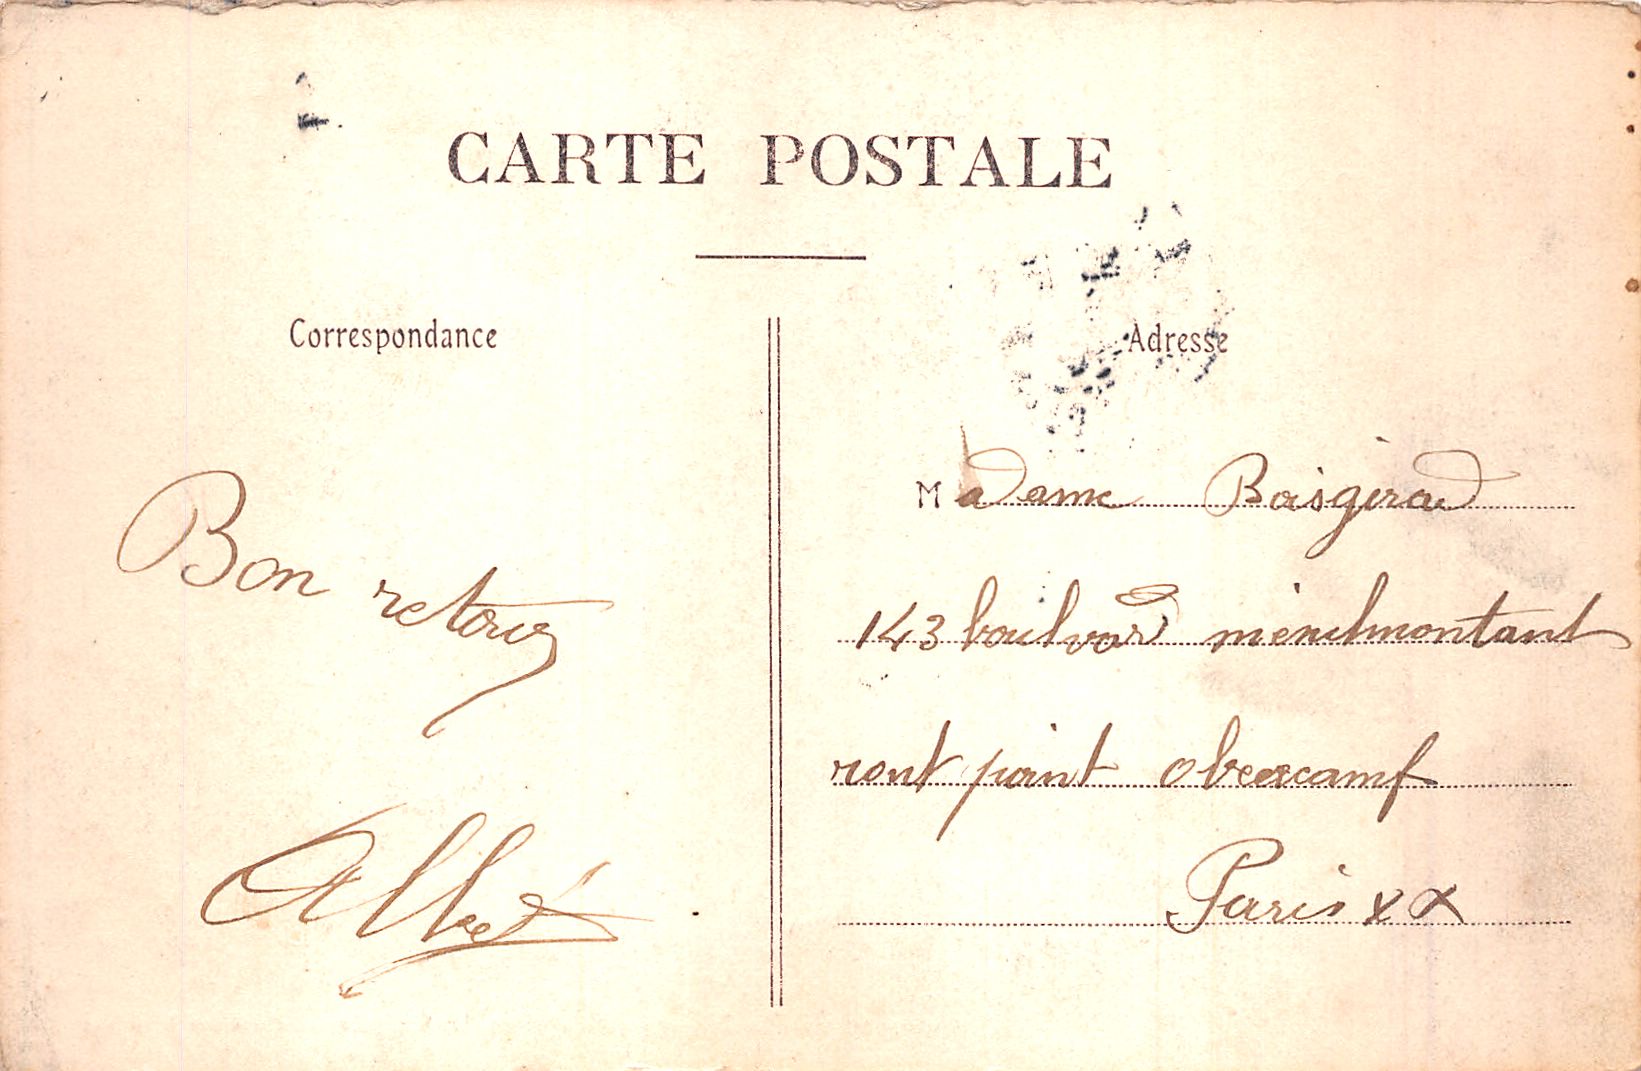 CARTE POSTALE
Correspondance
Adresse
Bon retour
Albert
Madame Boisgirad
143 boulvard ménilmontant
ront point oberxcamf
Paris xx